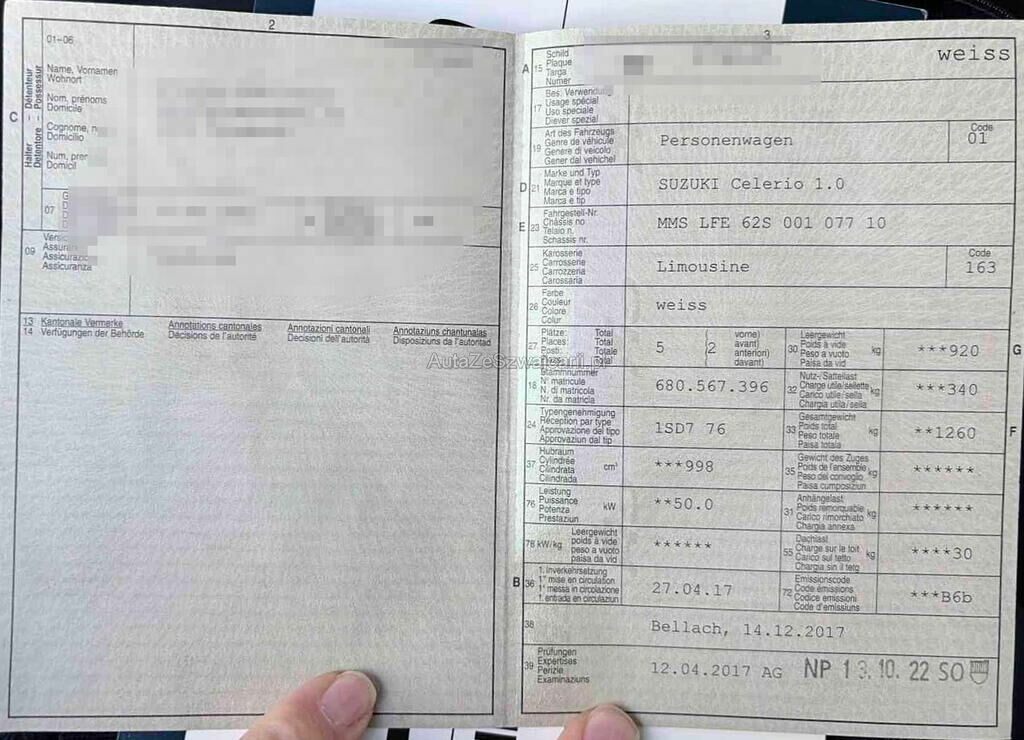 2
01-06
C
Halter - Détenteur
Detentore - Possessur
Name, Vornamen
Wohnort
Nom, prénoms
Domicile
Cognome, n
Domicilio
Num, pren
Domicil
07
09
Versic
Assuran
Assicurazio
Assicuranza
13 Kantonale Vermerke Annotations cantonales Annotazioni cantonali Annotaziuns chantunalas
14 Verfügungen der Behörde Décisions de l'autorité Decisioni dell'autorità Disposiziuns da l'autoritad
AutaZeSzwajcarii.pl
3
A 15 Schild
Plaque
Targa
Numer
weiss
17 Bes. Verwendung
Usage spécial
Uso speciale
Diever spezial
19 Art des Fahrzeugs
Genre de véhicule
Genere di veicolo
Gener dal vehichel
Personenwagen
Code
01
D 21 Marke und Typ
Marque et type
Marca e tipo
Marca e tip
SUZUKI Celerio 1.0
E 23 Fahrgestell-Nr.
Châssis no
Telaio n.
Schassis nr.
MMS LFE 62S 001 077 10
25 Karosserie
Carrosserie
Carrozzeria
Carossaria
Limousine
Code
163
26 Farbe
Couleur
Colore
Colur
weiss
27 Plätze: Total
Places: Total
Posti: Totale
Total
5
(2
vorne)
avant)
anteriori)
davant)
30 Leergewicht
Poids à vide
Peso a vuoto
Paisa da vid
kg
***920
G
18 Stammnummer
N° matricule
N. di matricola
Nr. da matricla
680.567.396
32 Nutz-/Sattellast
Charge utile/sellette
Carico utile/sella
Chargia utila/sella
kg
***340
24 Typengenehmigung
Réception par type
Approvazione del tipo
Approvaziun dal tip
1SD7 76
33 Gesamtgewicht
Poids total
Peso totale
Paisa totala
kg
**1260
F
37 Hubraum
Cylindrée
Cilindrata
Cilindrada
cm³
***998
35 Gewicht des Zuges
Poids de l'ensemble
Peso del convoglio
Paisa cumposiziun
kg
******
76 Leistung
Puissance
Potenza
Prestaziun
kW
**50.0
31 Anhängelast
Poids remorquable
Carico rimorchiato
Chargia annexa
kg
******
78 kW/kg
Leergewicht
poids à vide
peso a vuoto
paisa da vid
******
55 Dachlast
Charge sur le toit
Carico sul tetto
Chargia sin il tetg
kg
****30
B 36 1. Inverkehrsetzung
1re mise en circulation
1a messa in circolazione
1. entrada en circulaziun
27.04.17
72 Emissionscode
Code émissions
Codice emissioni
Code d'emissiuns
***B6b
38
Bellach, 14.12.2017
39 Prüfungen
Expertises
Perizie
Examinaziuns
12.04.2017 AG NP 13.10.22 SO